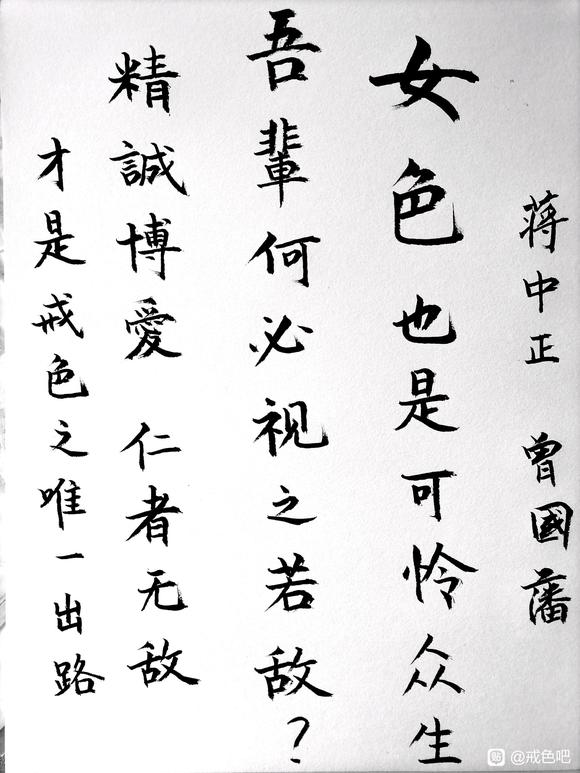 蒋中正 曾國藩
女色也是可怜众生
吾輩何必視之若敌?
精誠博愛 仁者无敌
才是戒色之唯一出路
贴 @戒色吧